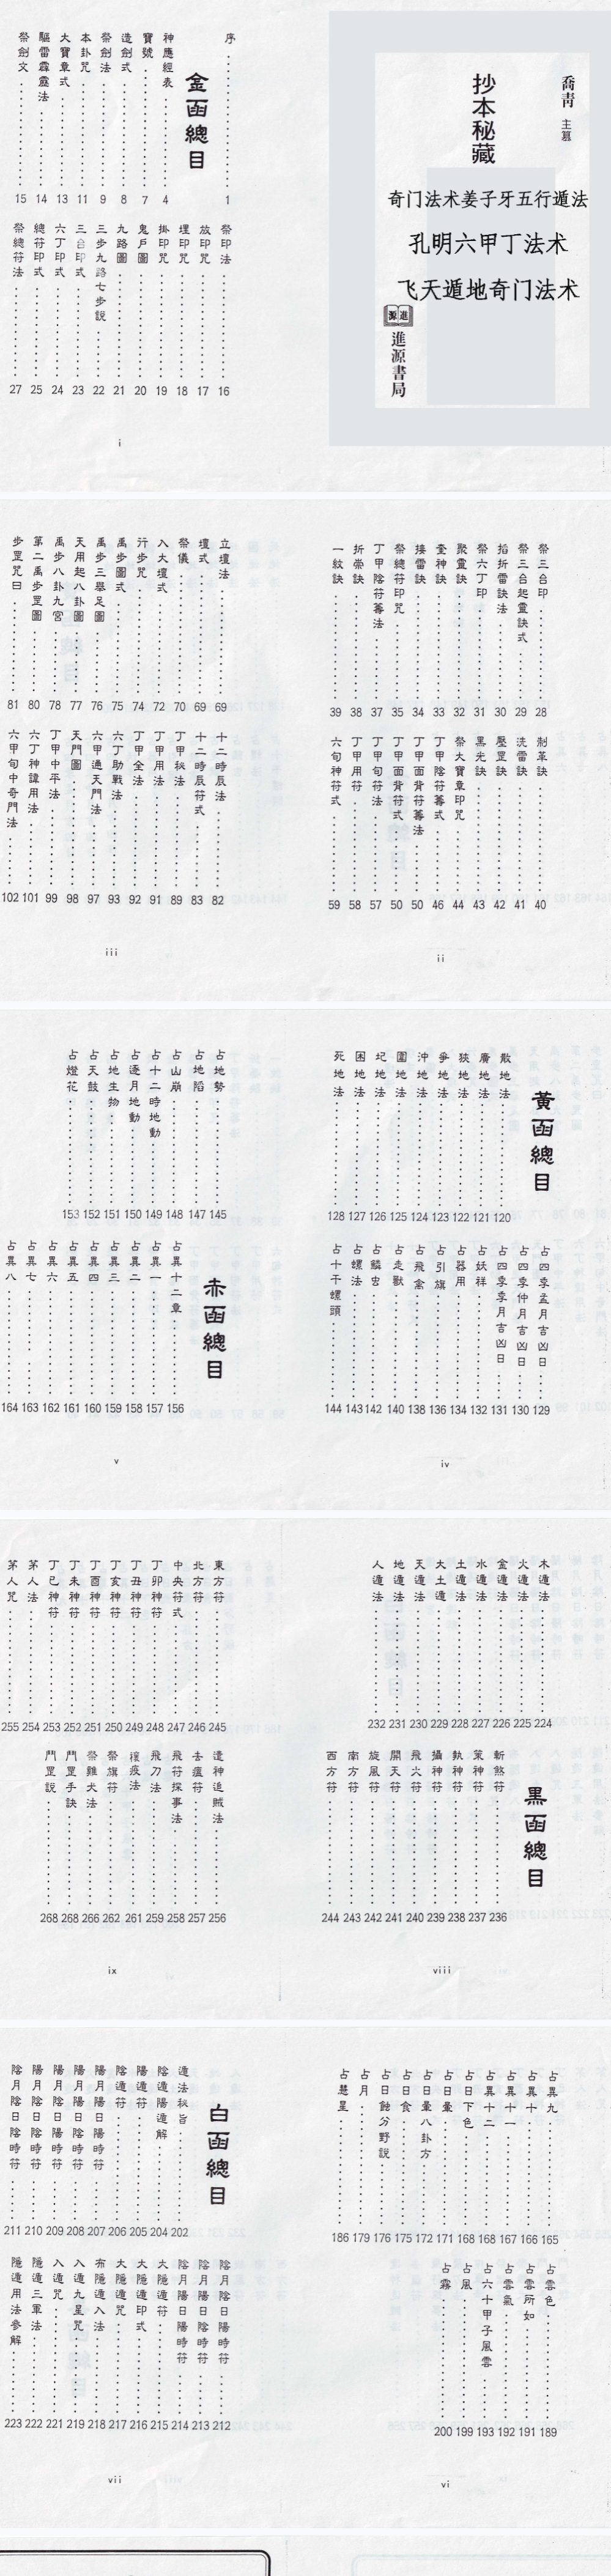 喬青 主纂
抄本秘藏
奇门法术姜子牙五行遁法
孔明六甲丁法术
飞天遁地奇门法术
進源
進源書局
序 1
金函總目
神應經表 4
寶號 7
造劍式 8
祭劍法 9
本卦咒 11
大寶章式 13
驅雷霹靂法 14
祭劍文 15
祭印法 16
放印咒 17
埋印咒 18
掛印咒 19
鬼戶圖 20
九路圖 21
三步九路七步說 22
三台印式 23
六丁印式 24
總符印式 25
祭總符法 27
i
祭三台印 28
祭三台起靈訣式 29
掐折雷訣法 30
祭六丁印 31
聚靈訣 32
奎神訣 33
接雷訣 34
祭總符印咒 35
丁甲陰符籌法 37
折祟訣 38
一紋訣 39
制革訣 40
洗雷訣 41
壓罡訣 42
黑光訣 43
祭大寶章印咒 44
丁甲陰符籌式 46
丁甲面背符籌法 50
丁甲面背符式 50
丁甲旬符法 57
丁甲用符 58
六旬神符式 59
ii
立壇法 69
壇式 69
祭儀 70
入大壇式 72
行步咒 74
禹步圖式 75
禹步三舉足圖 76
天用起八卦圖 77
禹步八卦九宮 78
第二禹步罡圖 80
步罡咒曰 81
十二時辰法 82
十二時辰符式 83
丁甲秘法 89
丁甲用法 91
丁甲全法 92
六丁助戰法 93
六甲通天門法 97
天門圖 98
丁甲中平法 99
六丁神諱用法 101
六甲旬中奇門法 102
iii
黃函總目
散地法 120
廣地法 121
狹地法 122
爭地法 123
沖地法 124
圍地法 125
圮地法 126
困地法 127
死地法 128
占四季孟月吉凶日 129
占四季仲月吉凶日 130
占四季季月吉凶日 131
占妖祥 132
占器用 134
占引旗 136
占飛禽 138
占走獸 140
占鱗虫 142
占螺法 143
占十干螺頭 144
iv
占地勢 145
占地陷 147
占山崩 148
占十二時地動 149
占逐月地動 150
占地生物 151
占天鼓 152
占燈花 153
赤函總目
占異十二章 156
占異一 157
占異二 158
占異三 159
占異四 160
占異五 161
占異六 162
占異七 163
占異八 164
v
木遁法 224
火遁法 225
金遁法 226
水遁法 227
土遁法 228
大土遁 229
天遁法 230
地遁法 231
人遁法 232
黑函總目
斬煞符 236
策神符 237
執神符 238
攝神符 239
飛火符 240
開天符 241
旋風符 242
南方符 243
西方符 244
viii
東方符 245
北方符 246
中央符式 247
丁卯神符 248
丁丑神符 249
丁亥神符 250
丁酉神符 251
丁未神符 252
丁巳神符 253
茅人法 254
茅人咒 255
遣神追賊法 256
去瘟符 257
飛符探事法 258
飛刀法 259
禳疫法 261
祭旗符 262
祭雞犬法 266
鬥罡手訣 268
鬥罡說 268
ix
占異九 165
占異十 166
占異十一 167
占異十二 168
占日下色 168
占日暈 171
占日暈八卦方 172
占日食 175
占日蝕分野說 176
占月 179
占慧星 186
占雲色 189
占雲所如 191
占雲氣 192
占六十甲子風雲 193
占風 199
占霧 200
vi
白函總目
遁法秘旨 202
陰遁陽遁解 204
陽遁符 205
陰遁符 206
陽月陽日陽時符 207
陽月陽日陰時符 208
陽月陰日陽時符 209
陽月陰日陰時符 210
陰月陰日陰時符 211
陰月陰日陽時符 212
陰月陽日陰時符 213
陰月陽日陽時符 214
大隱遁符 215
大隱遁印式 216
大隱遁咒 217
布隱遁入法 218
入遁九星咒 219
入遁咒 221
隱遁三軍法 222
隱遁用法參解 223
vii